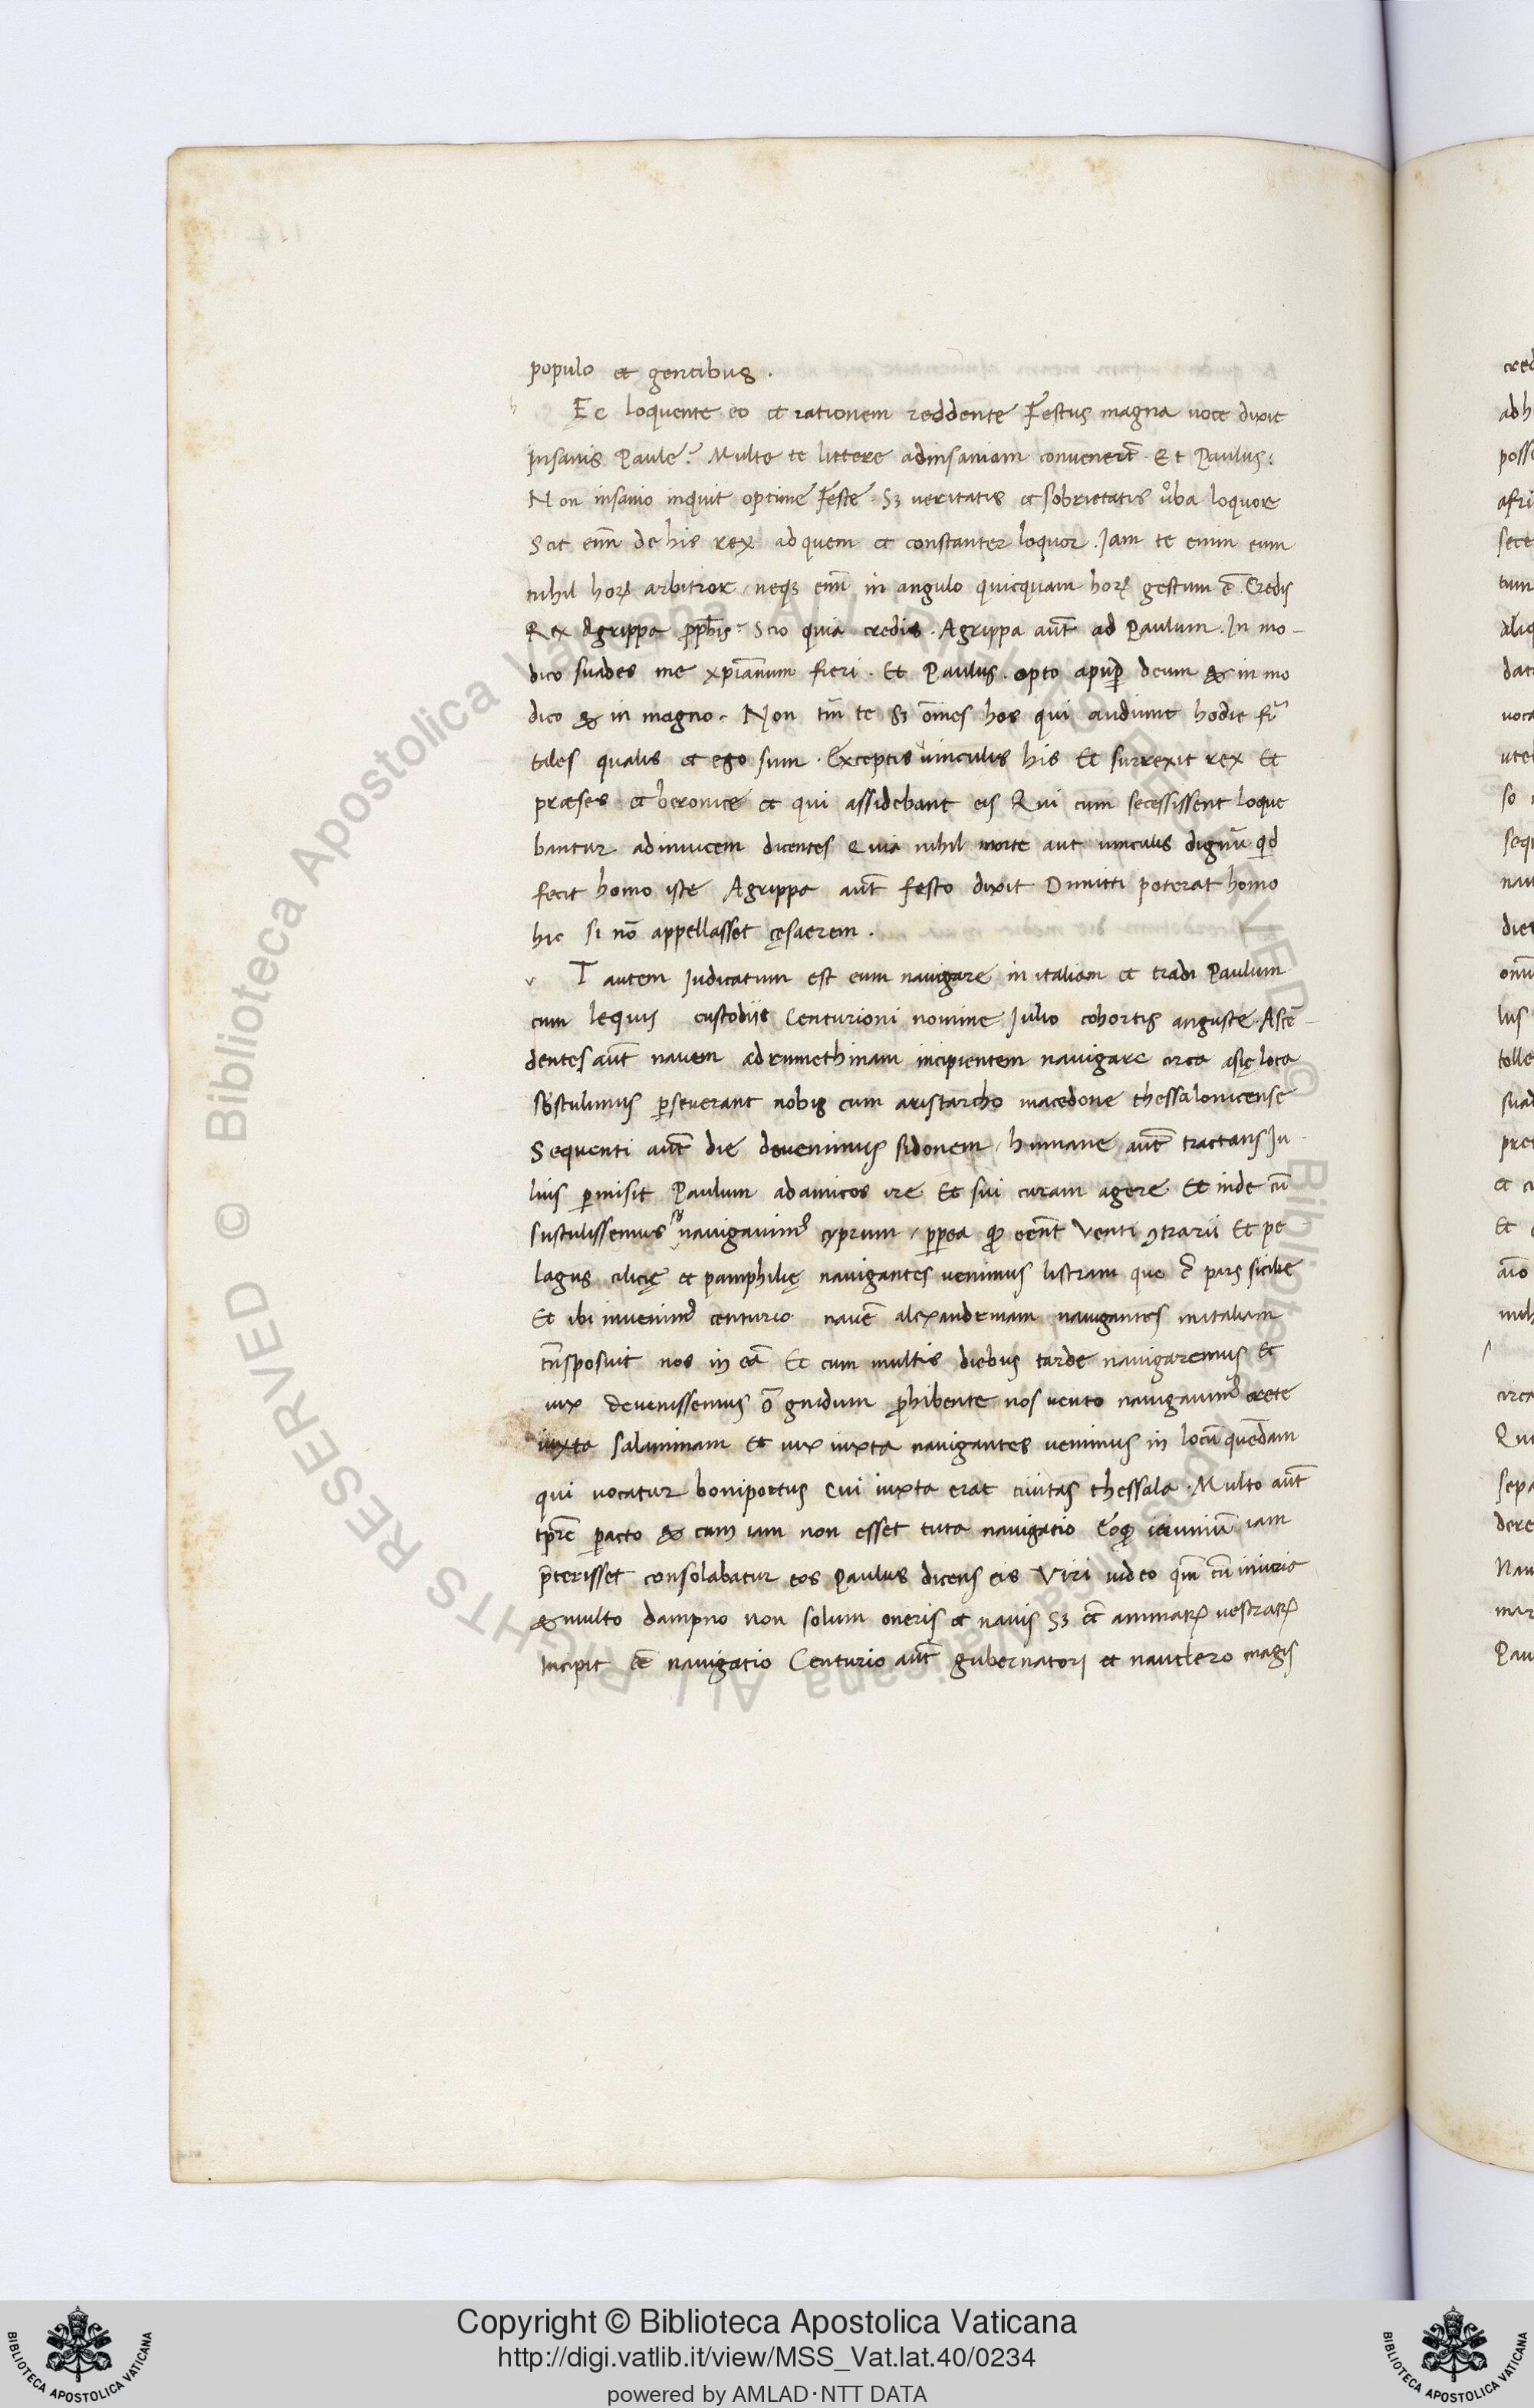 populo et gentibus.
h Ec loquente eo et rationem reddente Festus magna uoce dixit
Insanis Paule? Multe te littere adinsaniam conuenert̄. Et Paulus:
Non insanio inquit optime Feste. Sꝫ ueritatis et sobrietatis u̾ba loquor
Scit enī de his rex ad quem et constanter loquor. Jam te enim eum
nihil hoꝝ arbitror, neqꝫ enī in angulo quicquam hoꝝ gestum ē. Credis
Rex Agrippa ꝓphis? Scio quia credis. Agrippa aut̄ ad Paulum. In mo-
dico suades me xp̄ianum fieri. Et Paulus. opto apud deum & in mo
dico & in magno. Non tm̄ te sꝫ om̄es hos qui audiunt hodie fi
tales qualis et ego sum. Exceptis uinculis his Et surrexit rex Et
præses et beronice et qui assidebant eis Qui cum secessissent loque
bantur adinuicem dicentes Quia nihil morte aut uinculis dignū qid
fecit homo iste Agrippa aut̄ festo dixit Dimitti poterat homo
hic si nō appellasset cęsaerem.
v T autem Judicatum est eum nauigare in italiam et tradi Paulum
cum lequis custodiis Centurioni nomine Julio cohortis anguste. Ascē-
dentes aut̄ nauem adrumethinam incipientem nauigare circa asię loca
sustulimus ꝑseuerant nobis cum aristarcho macedone thessalonicense
Sequenti aut̄ die deuenimus sidonem, humane aut̄ tractans Ju-
lius ꝑmisit Paulum adamicos ire Et sui curam agere Et inde cū
sustulissemus nauigauimꝰ cyprum, ꝓpea ꝙ eent̄ Venti ꝯtrarii Et pe
lagus cilicię et pamphilię nauigantes uenimus listram que ē pars sicilie
Et ibi inuenimꝰ centurio nauē alexandernam nauigantes initaliam
tn̄sposuit nos in eā Et cum multis diebus tarde nauigaremus Et
uix deuenissemus ō gnidum ꝓhibente nos uento nauigauimꝰ crete
iuxta salaminam Et uix iuxta nauigantes uenimus in locū quendam
qui uocatur boniportus Cui iuxta erat ciuitas thessala. Multo aut̄
tp̄re ꝑacto & cum iam non esset tuta nauigatio Eoꝙ ieiuniū iam
p̄terisset consolabatur eos Paulus dicens eis Viri uideo qm̄ cū iniuria
& multo dampno non solum oneris et nauis sꝫ et̄ animaꝝ uestraꝝ
Incipit eē nauigatio Centurio aut̄ gubernatori et nauclero magis
Copyright © Biblioteca Apostolica Vaticana
http://digi.vatlib.it/view/MSS_Vat.lat.40/0234
powered by AMLAD·NTT DATA
BIBLIOTECA APOSTOLICA VATICANA
BIBLIOTECA APOSTOLICA VATICANA